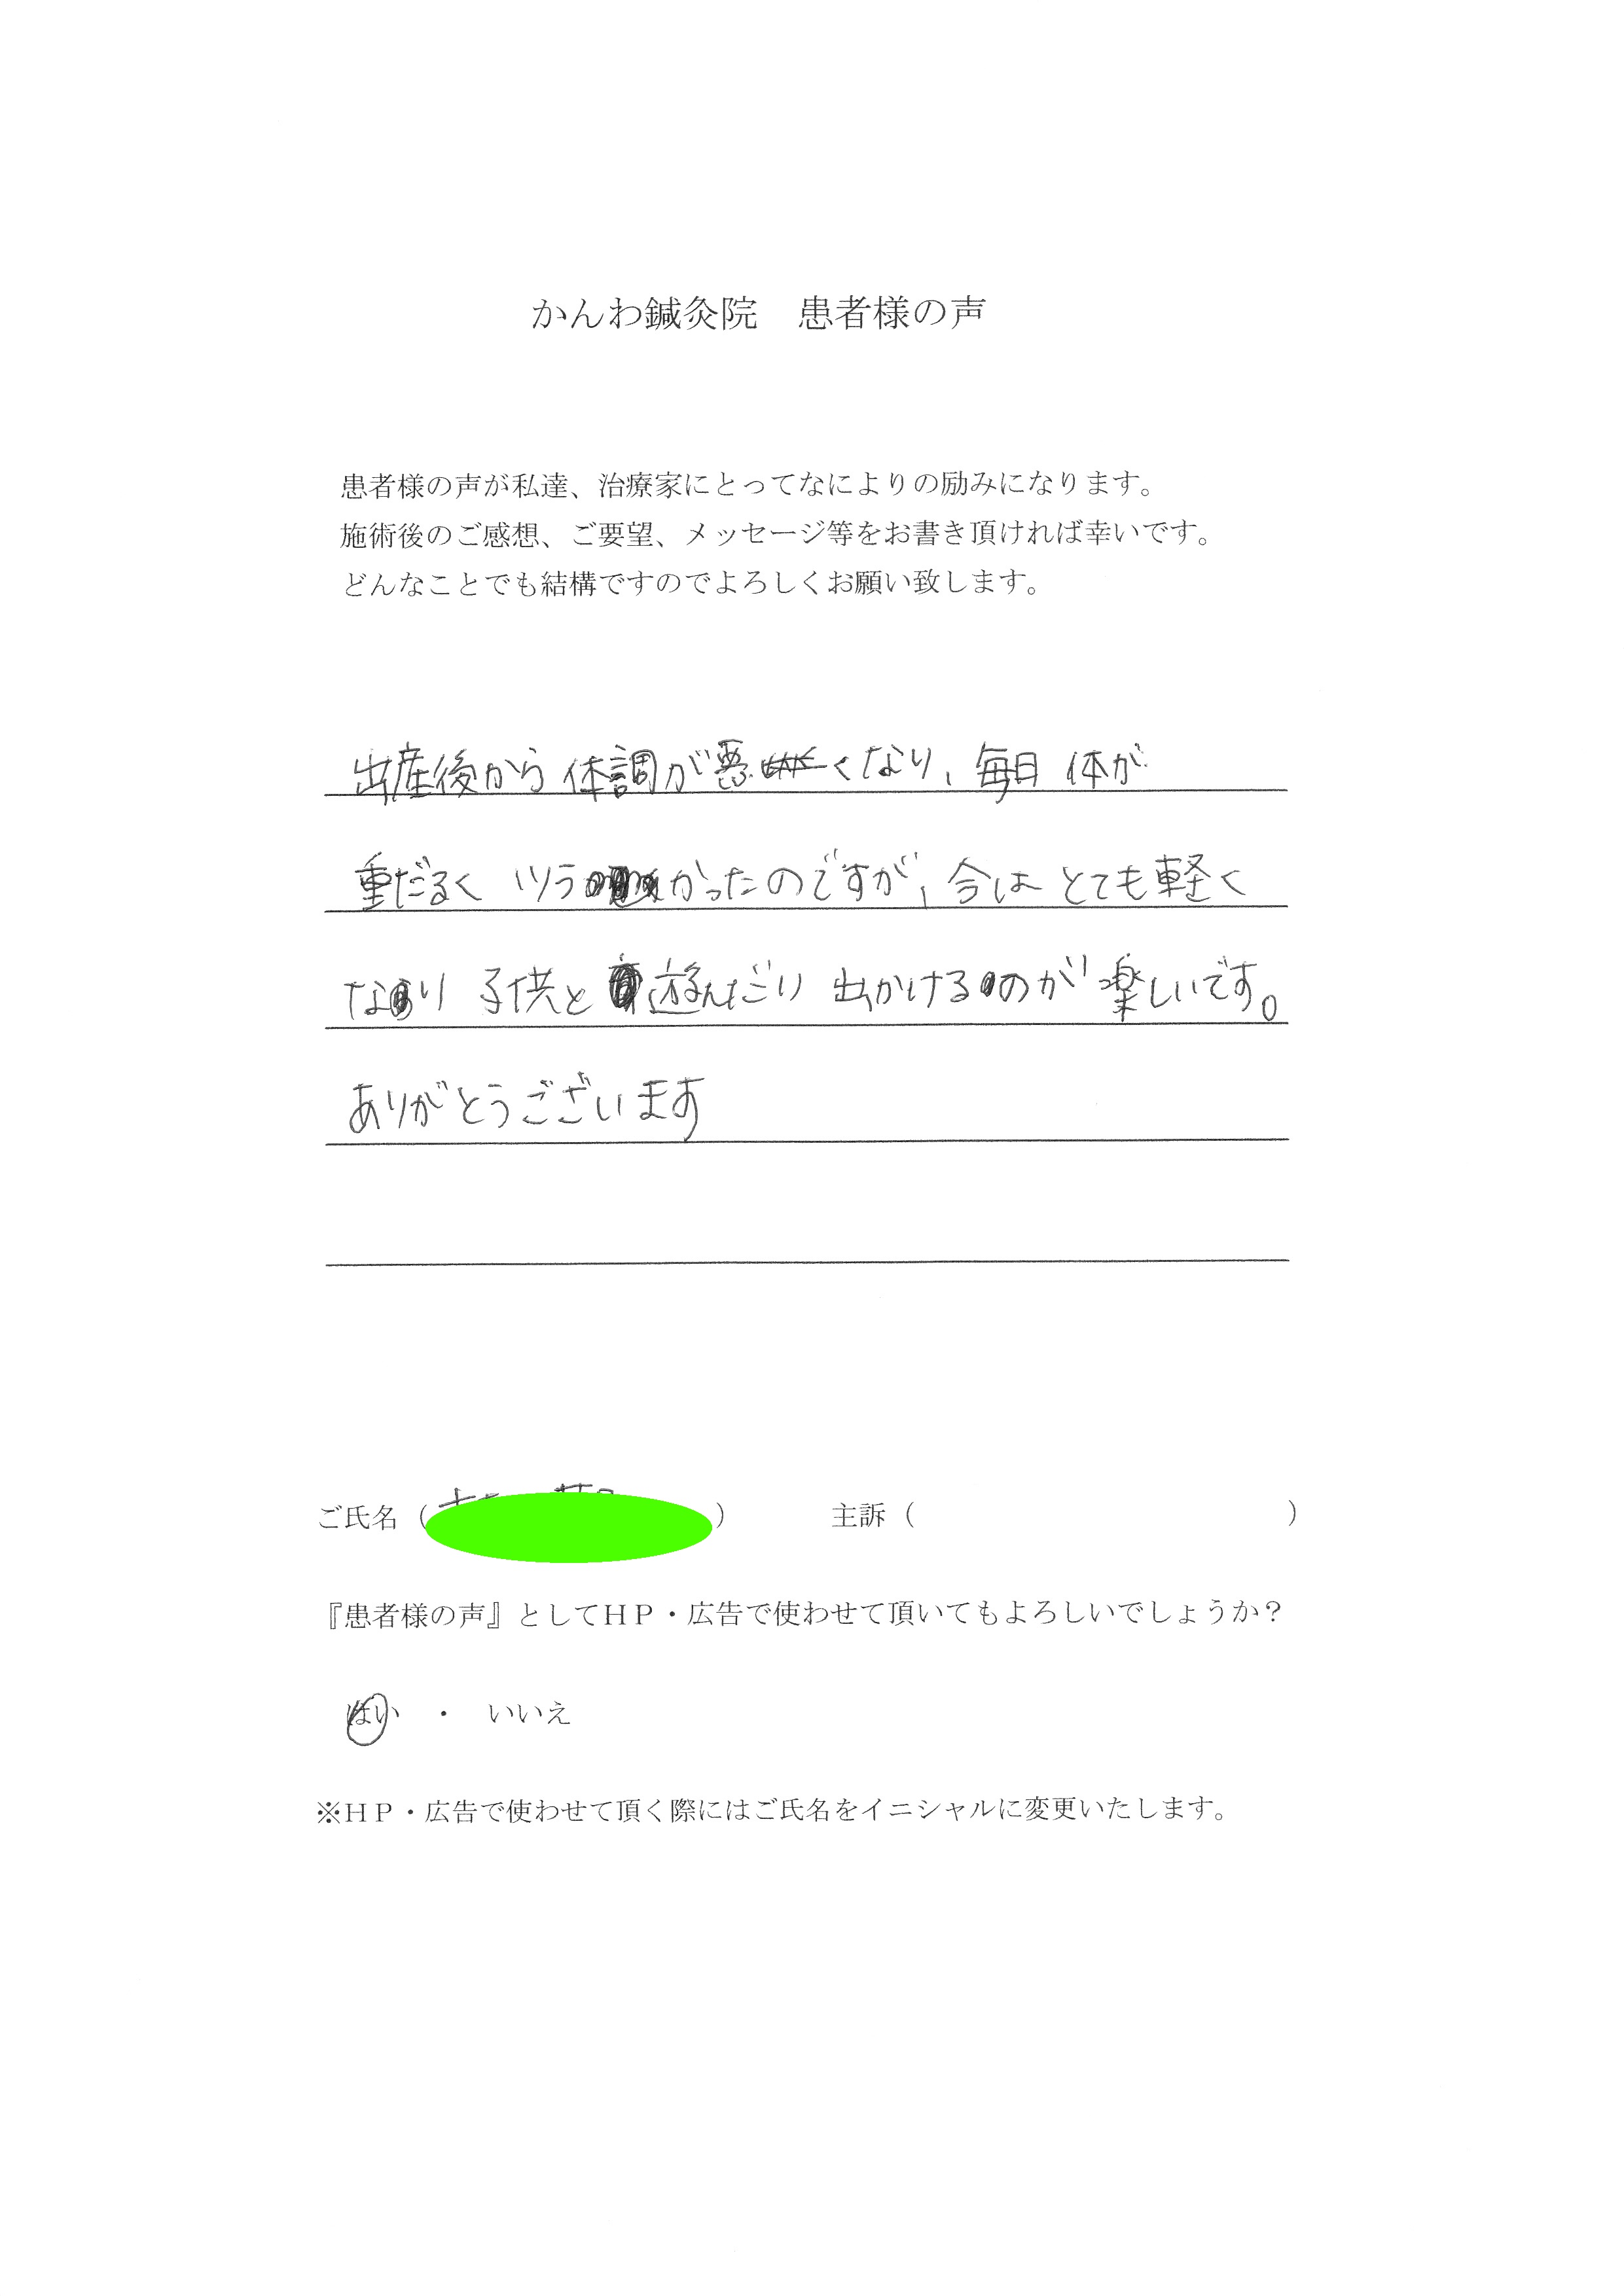 かんわ鍼灸院　患者様の声
患者様の声が私達、治療家にとってなによりの励みになります。
施術後のご感想、ご要望、メッセージ等をお書き頂ければ幸いです。
どんなことでも結構ですのでよろしくお願い致します。
出産後から体調が悪くなり、毎日体が
重だるくツラかったのですが、今はとても軽く
なり子供と遊んだり出かけるのが楽しいです。
ありがとうございます
ご氏名（　　　）　主訴（　　　）
『患者様の声』としてＨＰ・広告で使わせて頂いてもよろしいでしょうか？
はい　・　いいえ
※ＨＰ・広告で使わせて頂く際にはご氏名をイニシャルに変更いたします。